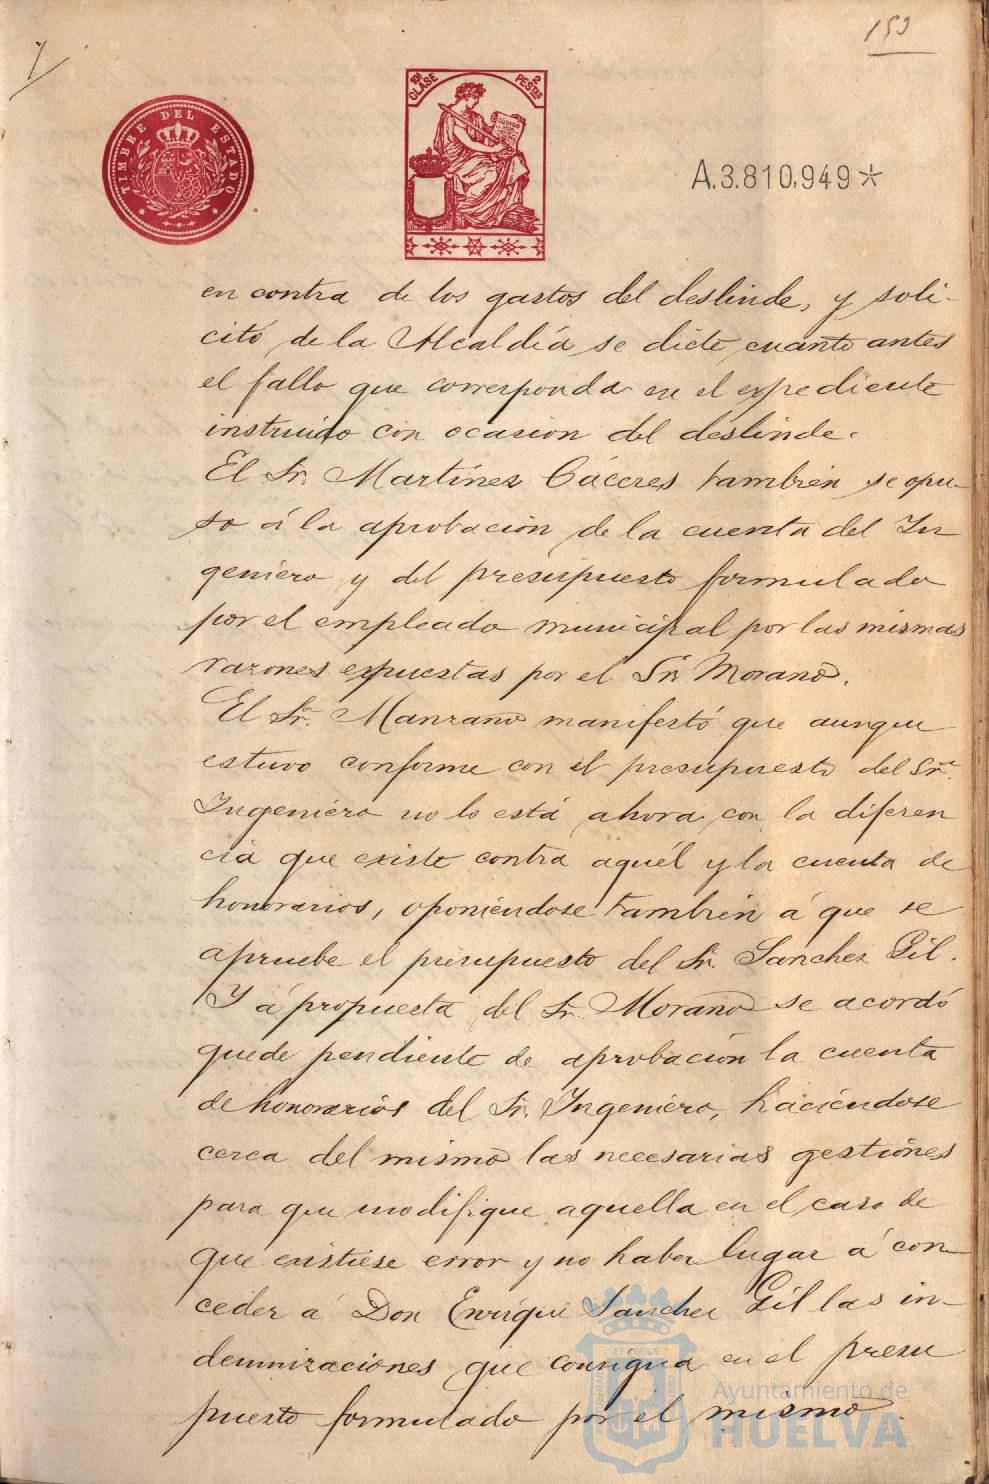 153
TIMBRE DEL ESTADO
CLASE
2
PESTAS
A.3.810,949*
en contra de los gastos del deslinde, y soli-
citó, de la Alcaldía se dicte cuanto antes
el fallo que corresponda en el expediente
instruido con ocasion del deslinde.
El Sr. Martínez Cáceres también se opu-
so á la aprobación de la cuenta del In
geniero y del presupuesto formulado
por el empleado municipal por las mismas
razones expuestas por el Sr. Morano.
El Sr. Manzano manifestó que aunque
estuvo conforme con el presupuesto del Sr.
Ingeniero no lo está ahora con la diferen
cia que existe contra aquél y la cuenta de
honorarios, oponiéndose también á que se
apruebe el presupuesto del Sr. Sanchez Gil.
Y á propuesta del Sr. Morano se acordó
quede pendiente de aprobación la cuenta
de honorarios del Sr. Ingeniero, haciéndose
cerca del mismo las necesarias gestiones
para que modifique aquella en el caso de
que existiese error y no haber lugar á con-
ceder á Don Enrique Sanchez Gil las in-
demnizaciones que consigna en el presu
puesto formulado por el mismo.
Ayuntamiento de
HUELVA